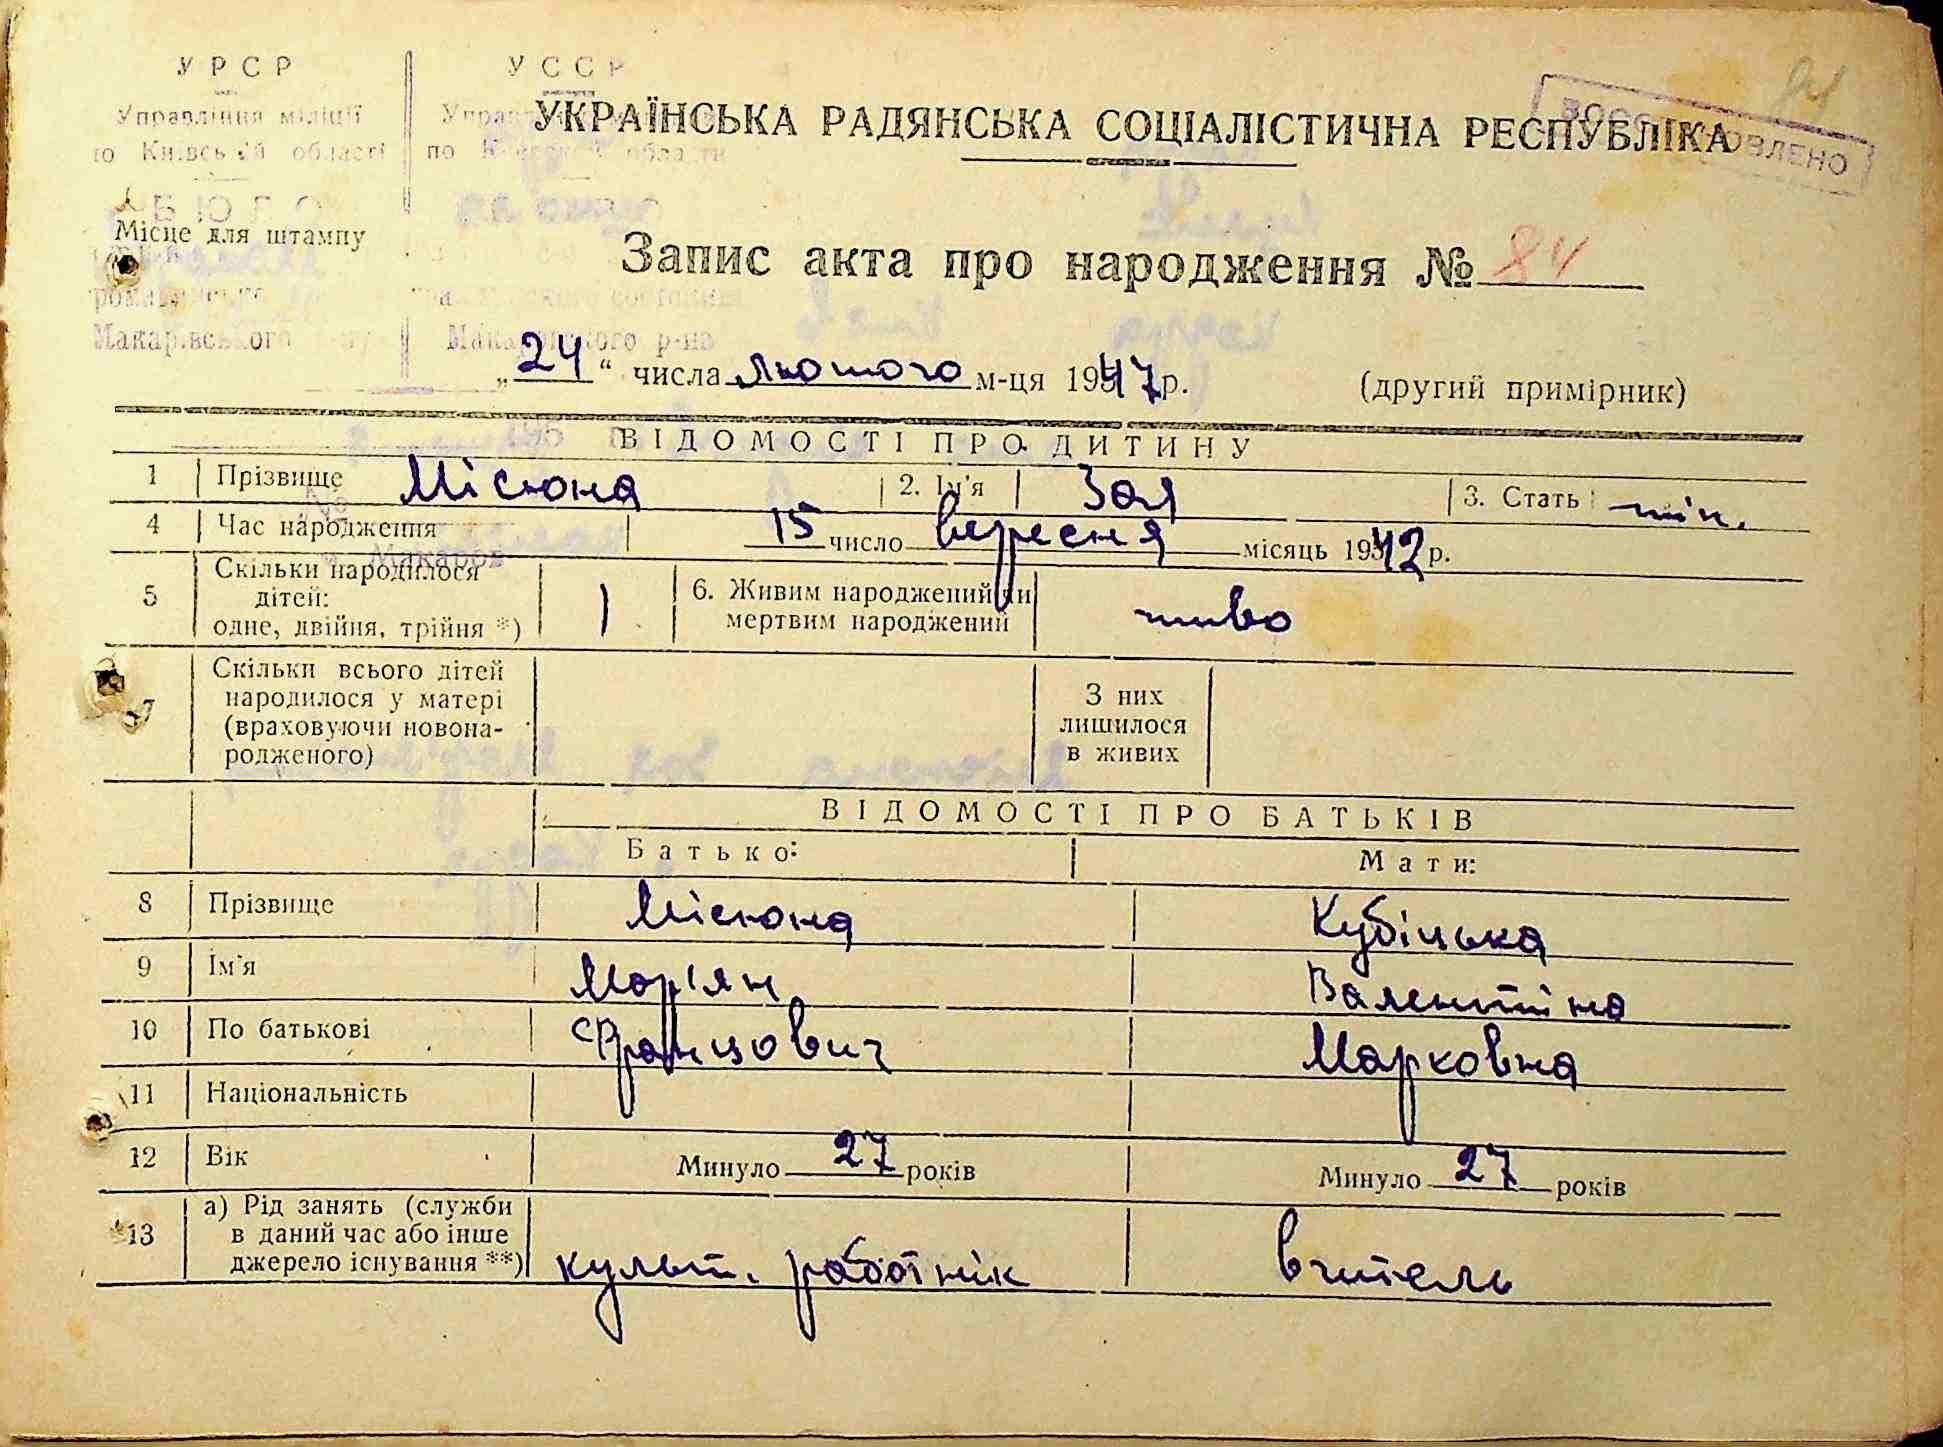 УРСР УССР
Управління міліції
по Київській області по Киевской области
УКРАЇНСЬКА РАДЯНСЬКА СОЦІАЛІСТИЧНА РЕСПУБЛІКА
ВОССТАНОВЛЕНО
БЮРО
Місце для штампу
Запис акта про народження № 84
Макарівського Макаровского р-на
„24“ числа лютого м-ця 1947 р. (другий примірник)
ВІДОМОСТІ ПРО ДИТИНУ
1 Прізвище Місюна 2. Ім'я Зоя 3. Стать жін.
4 Час народження 15 число вересня місяць 1942 р.
м. Макаров
5 Скільки народилося
дітей:
одне, двійня, трійня *) 1 6. Живим народжений чи
мертвим народжений живо
7 Скільки всього дітей
народилося у матері
(враховуючи новона-
родженого)
З них
лишилося
в живих
ВІДОМОСТІ ПРО БАТЬКІВ
Батько: Мати:
8 Прізвище Місюна Кубіцька
9 Ім'я Мар'ян Валентіна
10 По батькові Францович Марковна
11 Національність
12 Вік Минуло 27 років Минуло 27 років
13 а) Рід занять (служби
в даний час або інше
джерело існування **) культ. работнік вчитель